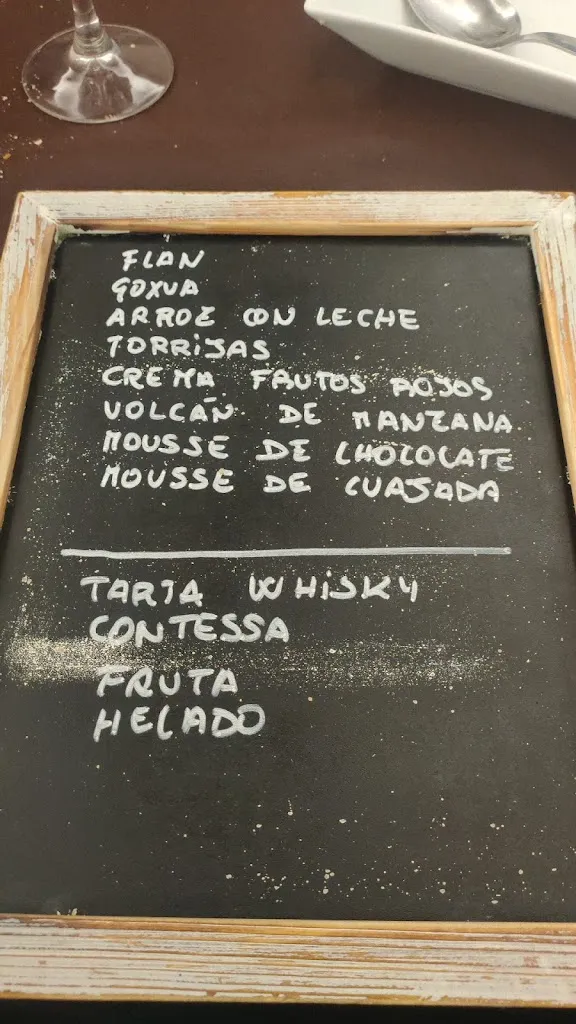 FLAN
GOXUA
ARROZ CON LECHE
TORRiJAS
CREMA FRUTOS ROJOS
VOLCÁN DE MANZANA
MOUSSE DE CHOCOLATE
MOUSSE DE CUAJADA
TARTA WHiSKY
CONTESSA
FRUTA
HELADO